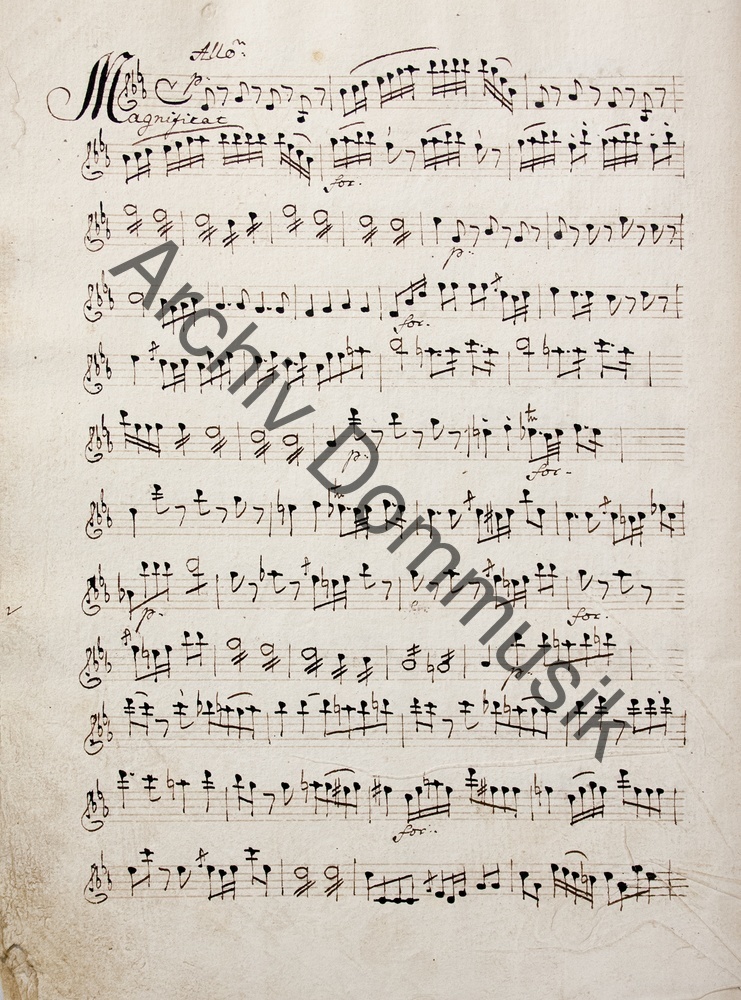 Allo:
p:
Magnificat
for.
p.
for.
p.
for.
p.
for.
for.
Archiv Dommusik